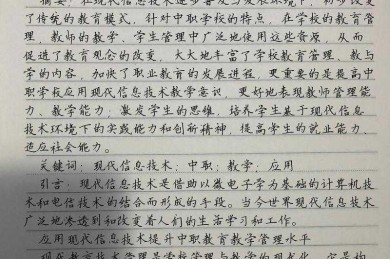 摘要：在现代信息技术逐步普及与发展环境下，初步改变
了传统的教育模式，针对中职学校的特点，在学校的教育管
理、教师的教学、学生管理中广泛地使用这些资源，从而
促进了教育观念的改变，大大地丰富了学校教育管理、教与
学的内容，加快了职业教育的发展进程，更重要的是提高中
职学校应用现代信息技术教学意识，更好地表现教师管理能
力、教学能力；激发学生的思维，培养学生基于现代信息
技术环境下的实践能力和创新精神，提高学生的就业能力、
适应社会能力。
关键词：现代信息技术；中职；教学；应用
引言：现代信息技术是借助以微电子学为基础的计算机技
术和电信技术的结合而形成的手段。当今世界现代信息技术
广泛地渗透到和改变着人们的生活学习和工作。
应用现代信息技术提升中职教育教学管理水平
现代教育技术管理是学校管理与教学的现代化，它是构